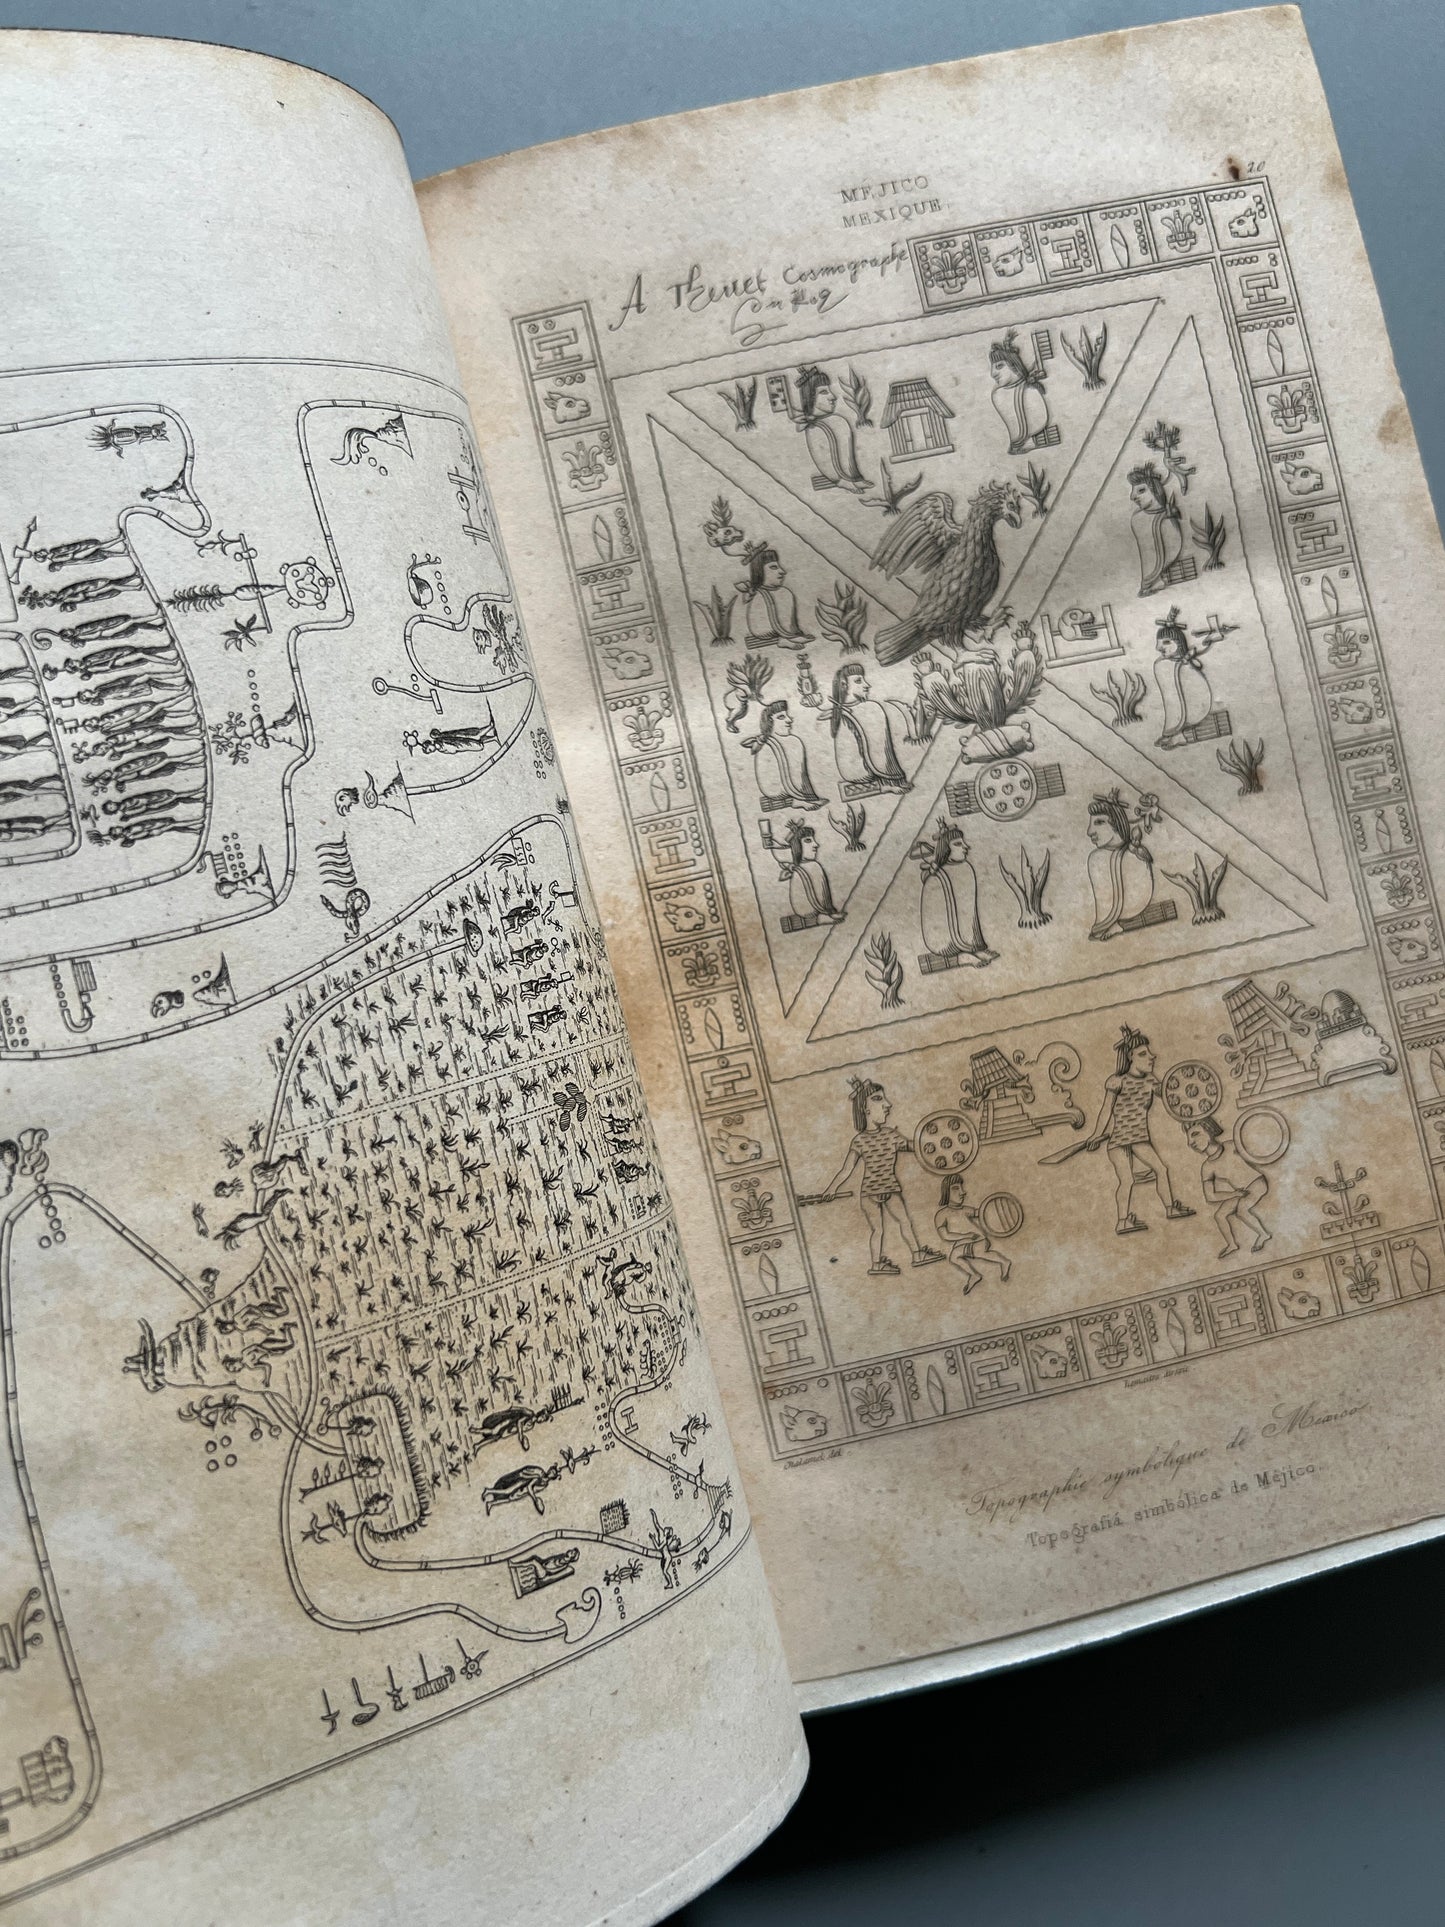 20
MÉJICO
MEXIQUE.
A Thevet Cosmographe
Du Roy
Topographie symbolique de Mexico
Topografiá simbólica de Méjico.